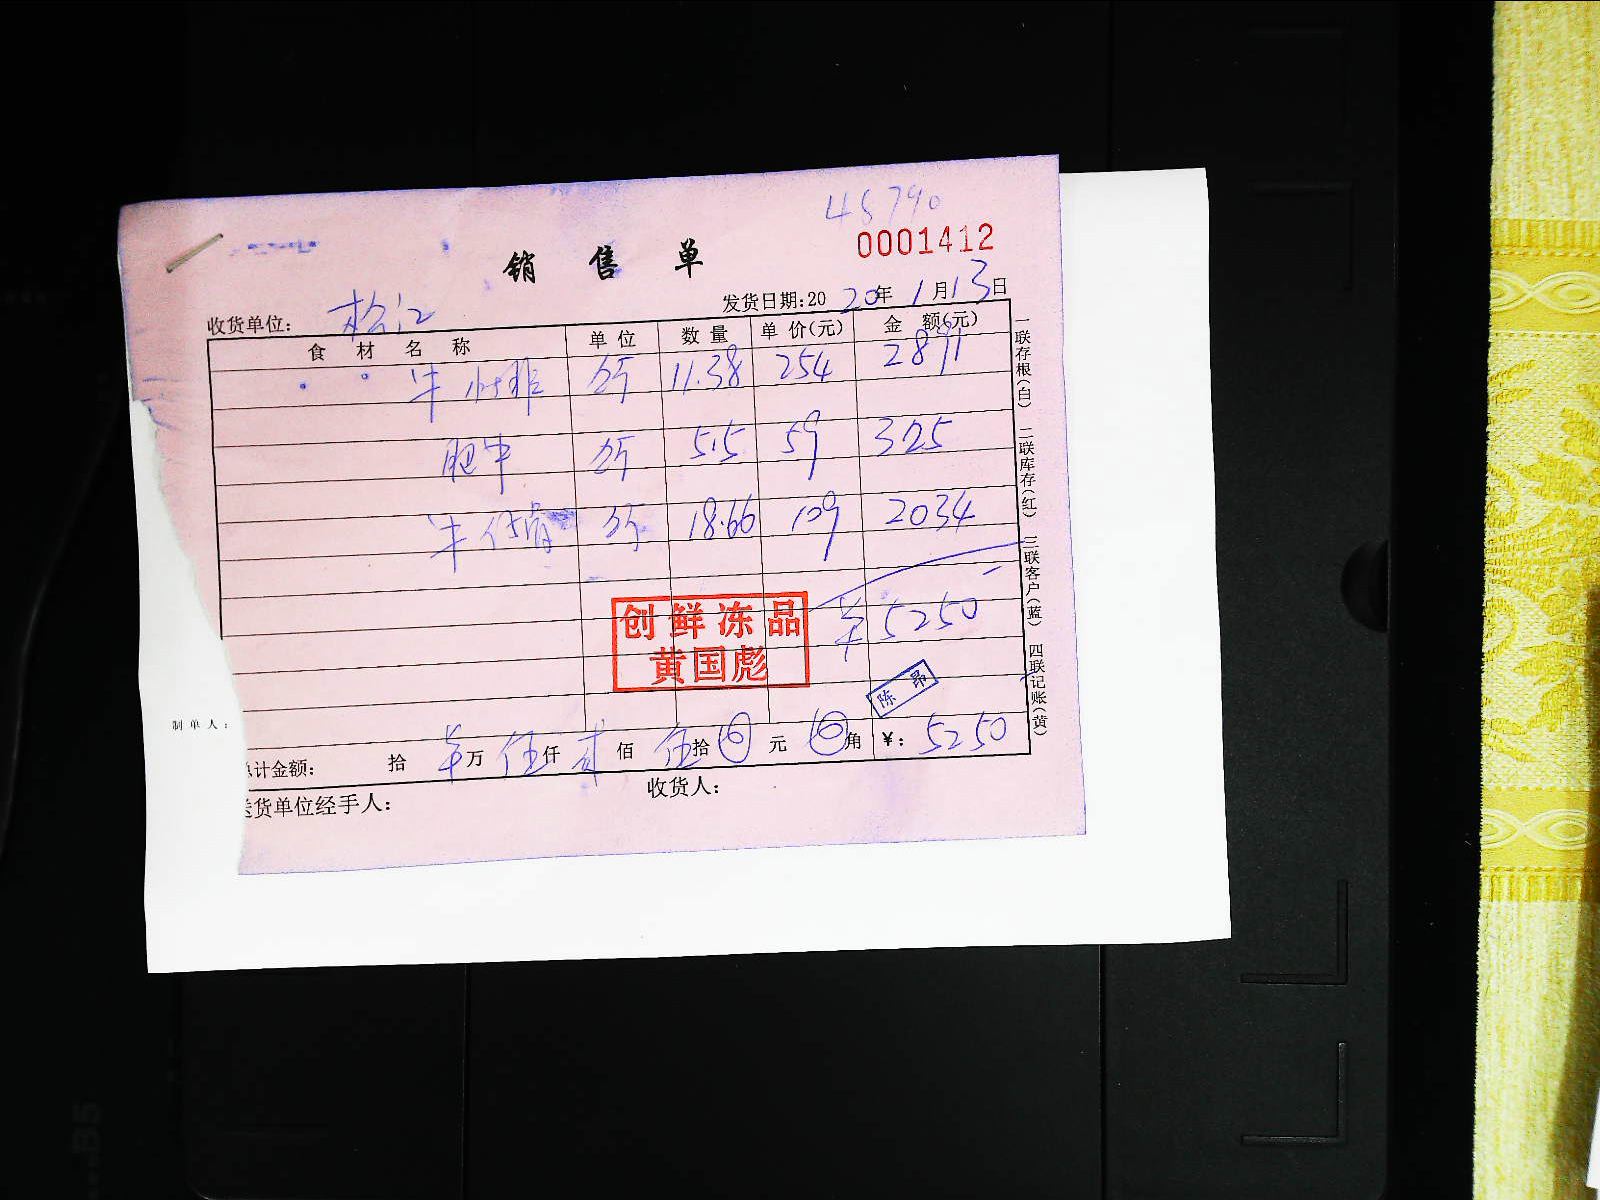 45790
0001412
销 售 单
发货日期:2020年1月13日
收货单位: 松江
食 材 名 称 单 位 数 量 单 价(元) 金 额(元)
牛 斤 11.38 254 2891
肥牛 斤 5.5 59 325
牛仔骨 斤 18.66 109 2034
¥5250
创鲜冻品
黄国彪
陈昂
制单人:
总计金额: 拾 万 伍仟 贰佰 伍拾 元 角 ¥: 5250
送货单位经手人: 收货人:
一联存根(白) 二联库存(红) 三联客户(蓝) 四联记账(黄)
B5